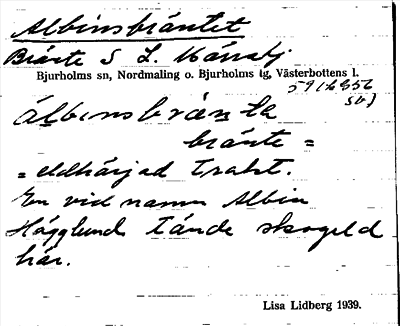 Albinsbräntet
Bränte S L. Kärrsbj
Bjurholms sn, Nordmaling o. Bjurholms tg, Västerbottens l.
Albinsbränta
bränte =
= eldhärjad trakt.
En vid namn Albin
Hägglund tände skogeld
här.
Lisa Lidberg 1939.